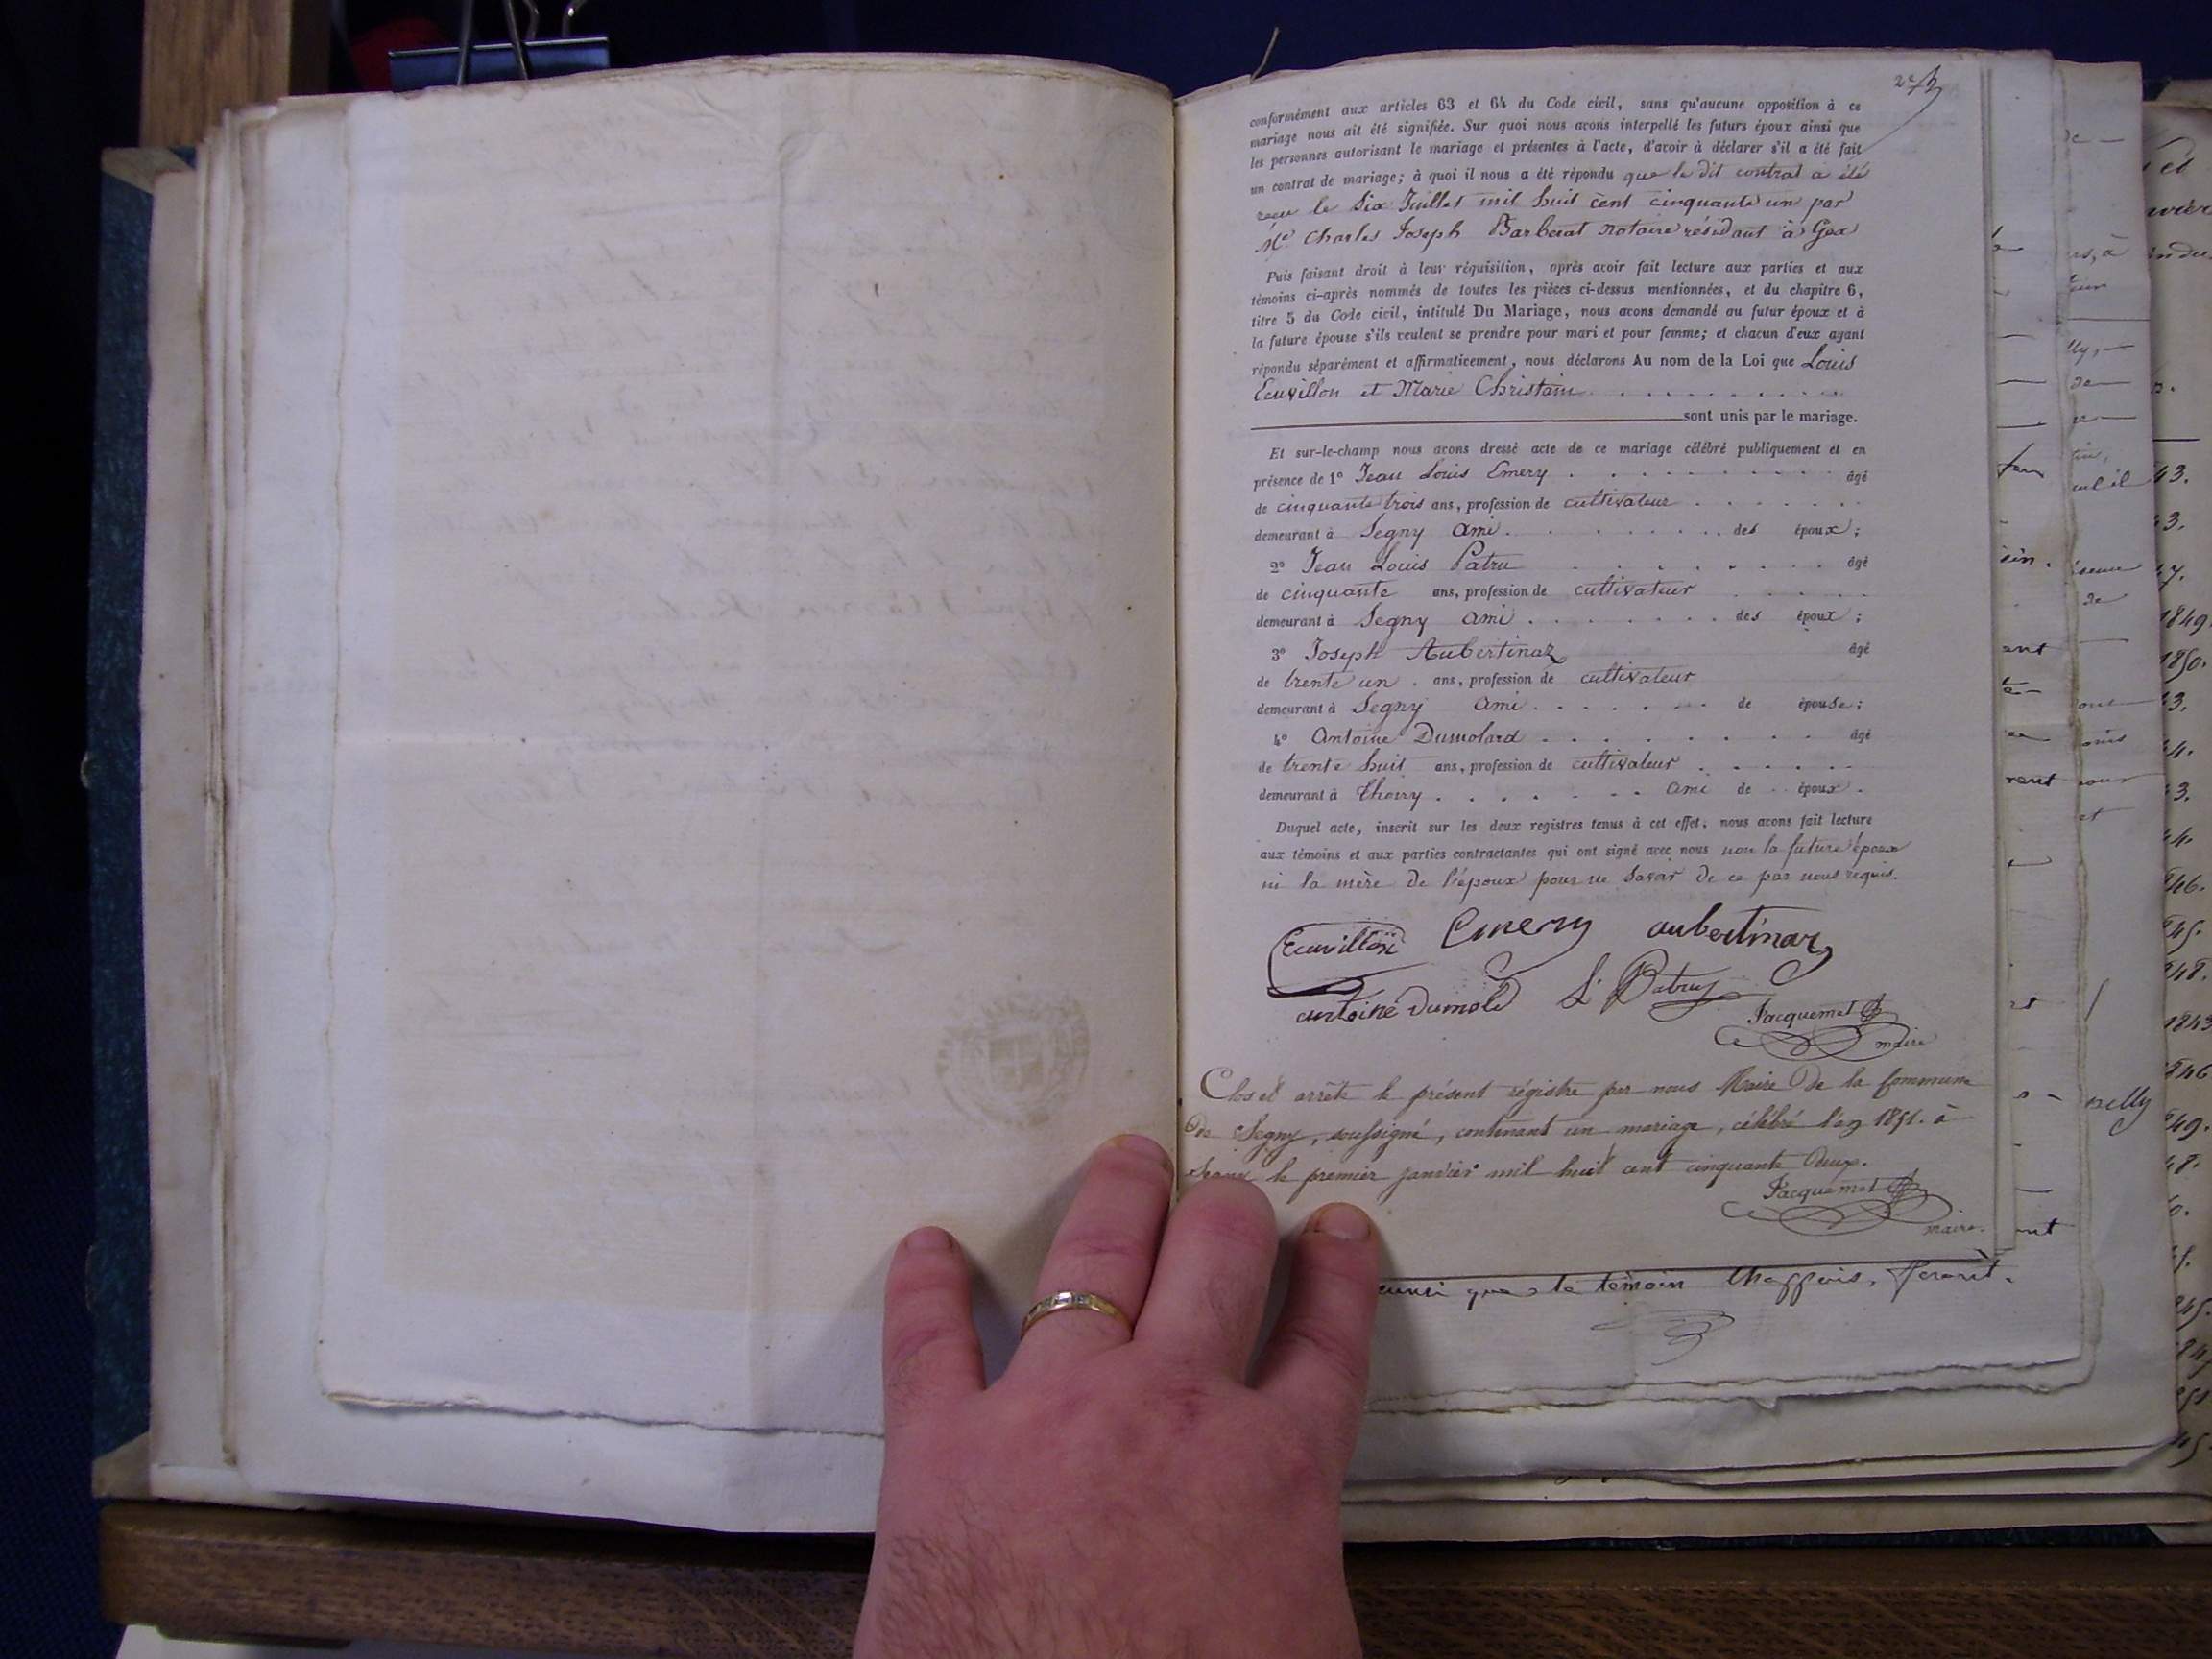 conformément aux articles 63 et 64 du Code civil, sans qu'aucune opposition à ce
mariage nous ait été signifiée. Sur quoi nous avons interpellé les futurs époux ainsi que
les personnes autorisant le mariage et présentes à l'acte, d'avoir à déclarer s'il a été fait
un contrat de mariage; à quoi il nous a été répondu que le dit contrat a été
reçu le Six Juillet mil huit cent cinquante un par
Me Charles Joseph Barberat notaire résidant à Gex
Puis faisant droit à leur réquisition, après avoir fait lecture aux parties et aux
témoins ci-après nommés de toutes les pièces ci-dessus mentionnées, et du chapitre 6,
titre 5 du Code civil, intitulé Du Mariage, nous avons demandé au futur époux et à
la future épouse s'ils veulent se prendre pour mari et pour femme; et chacun d'eux ayant
répondu séparément et affirmativement, nous déclarons Au nom de la Loi que Louis
Ecuvillon et Marie Christain
sont unis par le mariage.
Et sur-le-champ nous avons dressé acte de ce mariage célébré publiquement et en
présence de 1° Jean Louis Emery âgé
de cinquante trois ans, profession de cultivateur
demeurant à Segny ami des époux;
2° Jean Louis Patru âgé
de cinquante ans, profession de cultivateur
demeurant à Segny ami des époux;
3° Joseph Aubertinaz âgé
de trente un ans, profession de cultivateur
demeurant à Segny ami de épouse;
4° Antoine Dumolard âgé
de trente huit ans, profession de cultivateur
demeurant à Thoiry ami de époux.
Duquel acte, inscrit sur les deux registres tenus à cet effet, nous avons fait lecture
aux témoins et aux parties contractantes qui ont signé avec nous non la future épouse
ni la mère de l'époux pour ne savoir de ce par nous requis.
Ecuvillon Emery aubertinaz
antoine Dumold L Patru
Jacquemet
maire
Clos et arrêté le présent régistre par nous Maire de la Commune
De Segny, soussigné, contenant un mariage, célébré l'an 1851. à
Segny le premier janvier mil huit cent cinquante deux.
Jacquemet
maire.
ainsi que le témoin